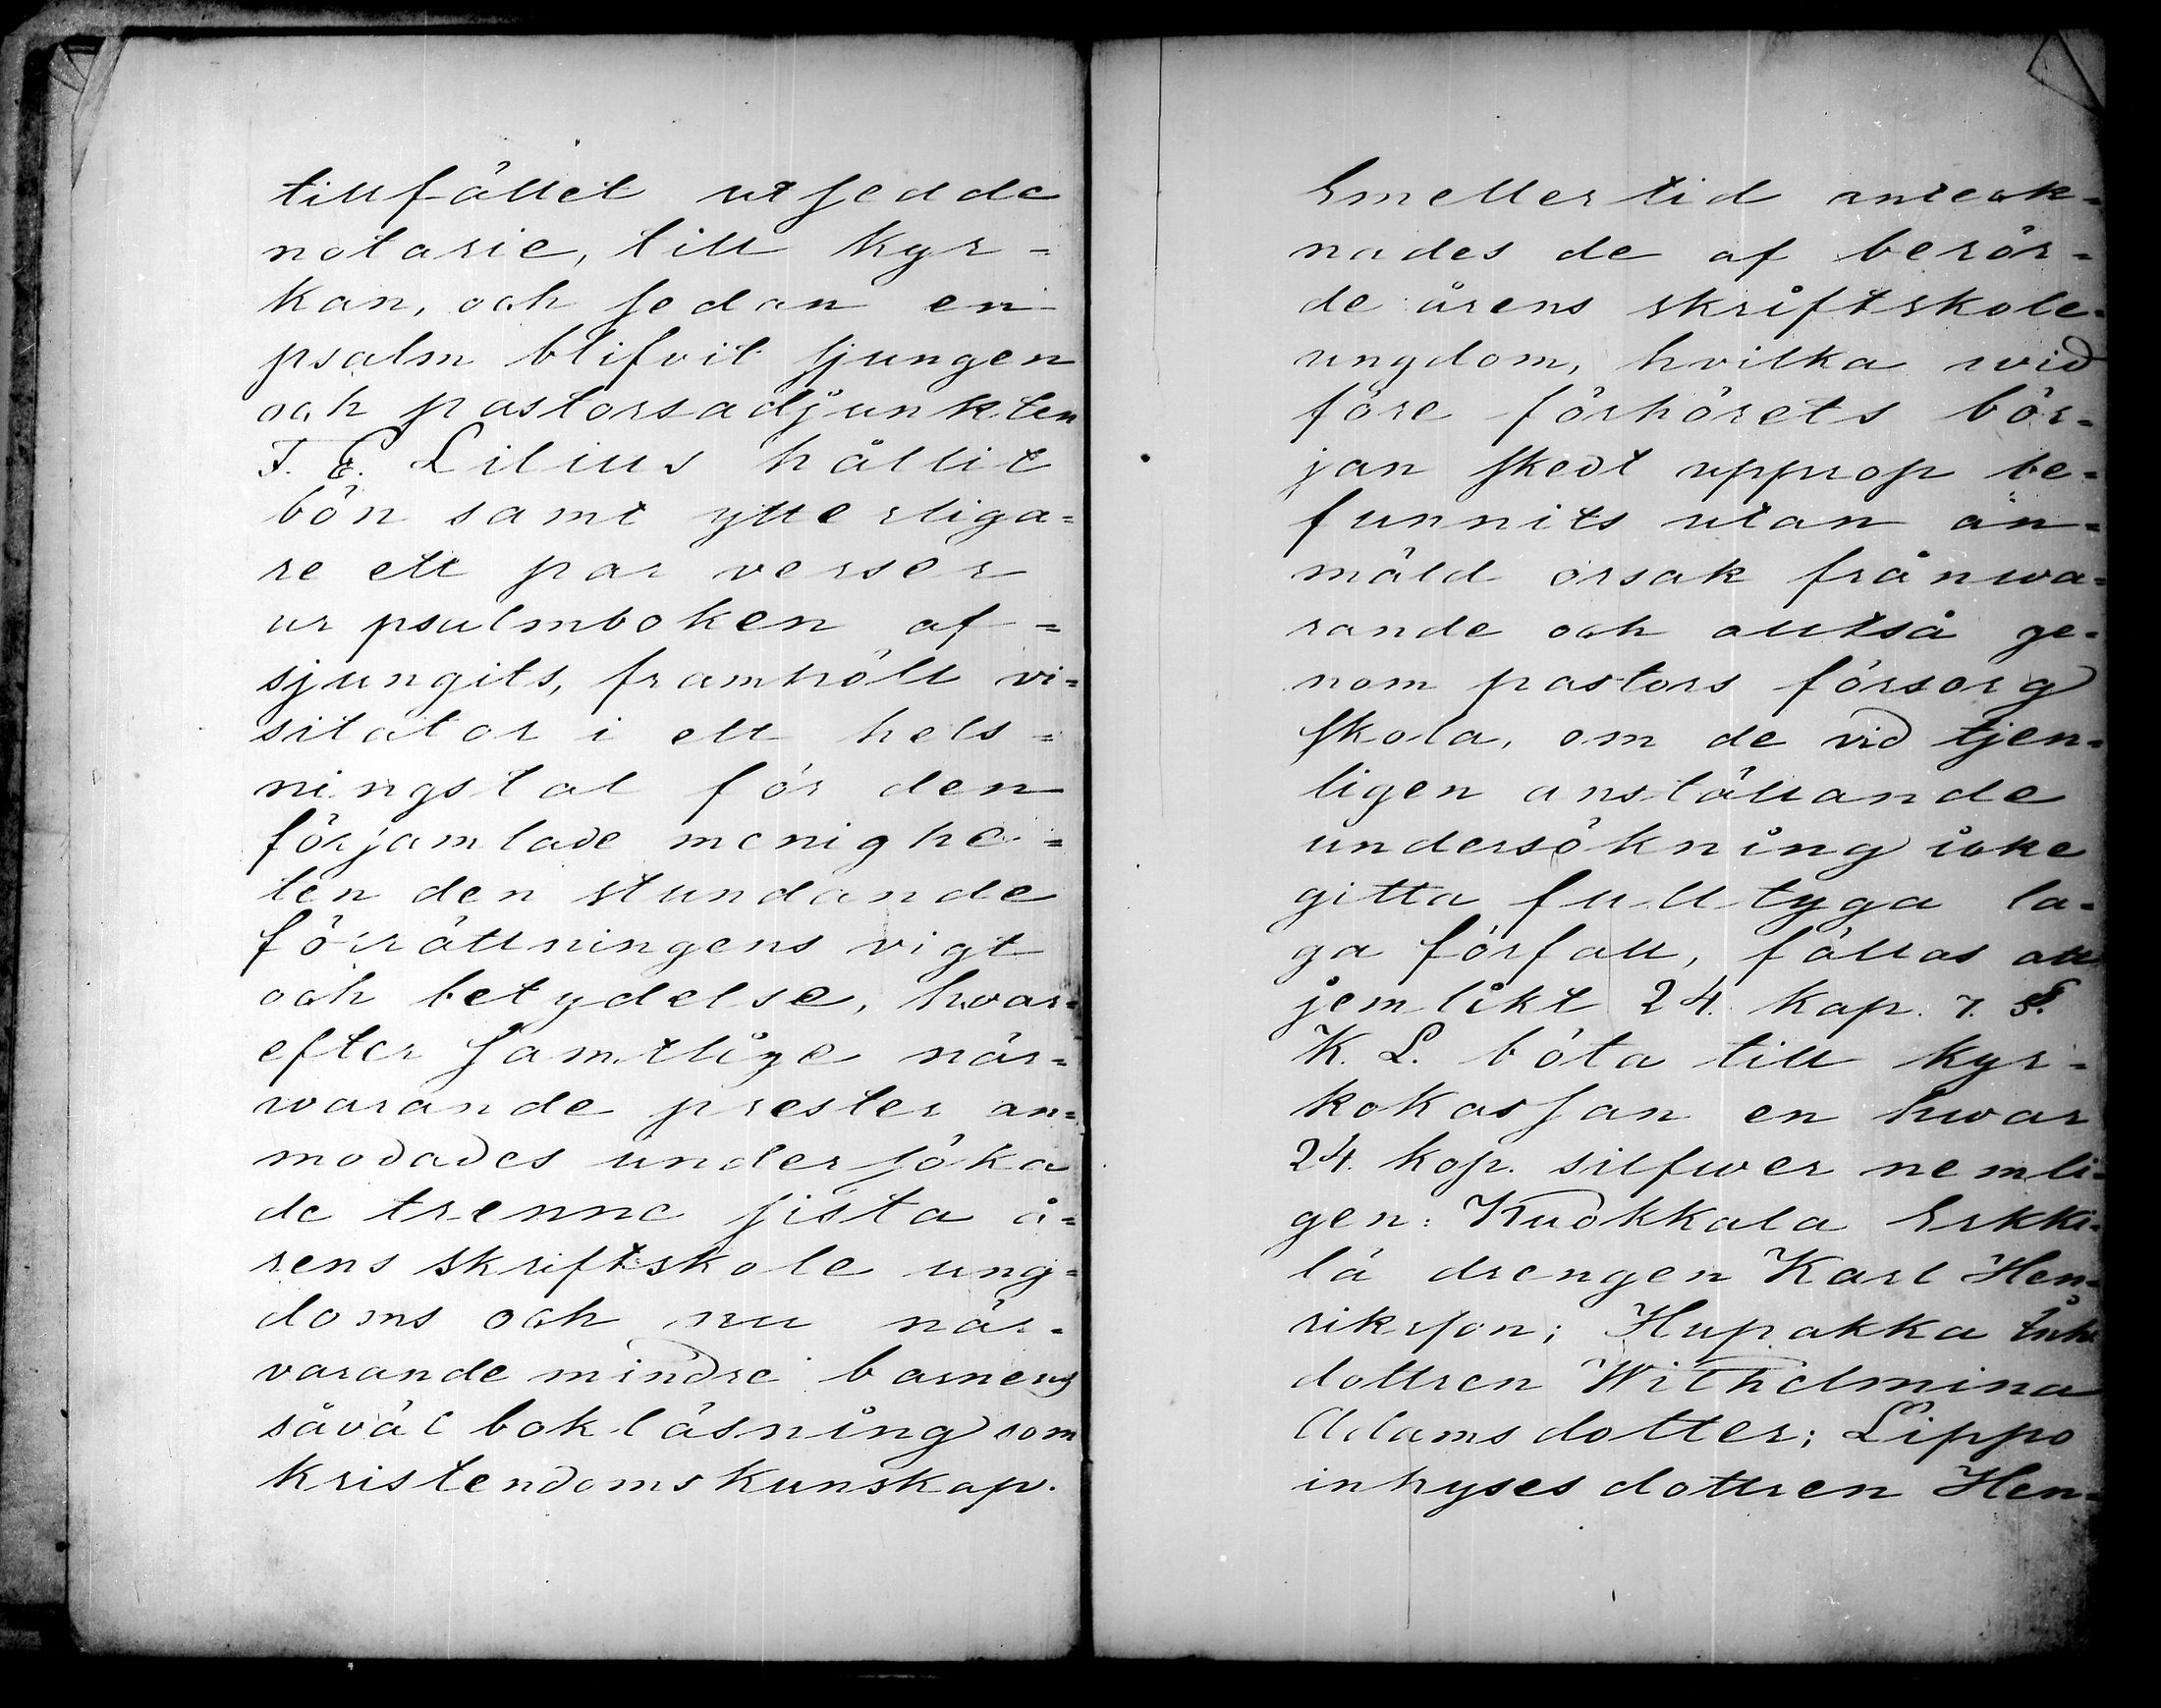 tillfället utsedde
notarie, till Kyr=
kan, och sedan en
psalm blifvit sjungen
och pastorsadjunkten
F. E. Lilius hållit
bön samt ytterliga=
re ett par verser
ur psalmboken af=
sjungits, framhöll vi=
sitator i ett hels=
ningstal för den
församlade menighe=
ten den stundande
förrättningens vigt
och betydelse, hvar=
efter samtlige när=
warande prester an=
modades undersöka
de trenne sista å=
rens skriftskole ung=
doms och nu när=
varande mindre barnens
såväl bokläsning som
Kristendomskunskap.
Emellertid anteck=
nades de af berör=
de årens skriftskole=
ungdom, hvilka wid
före förhörets bör=
jan skedt upprop be=
funnits utan an=
mäld orsak frånwa=
rande och alltså ge=
nom pastors försorg
skola, om de vid tjen=
ligen anställande
undersökning icke
gitta fulltyga la=
ga förfall, fällas att
jemlikt 24. Kap. 7. §.
K. L. böta till kyr=
kokassan en hwar
24. kop. silfwer nemli=
gen: Kuokkala Erkki=
lä drengen Karl Hen=
riksson; Hupakka Inh.
dottren Wilhelmina
Adamsdotter; Lippo
inhysesdottren Hen=